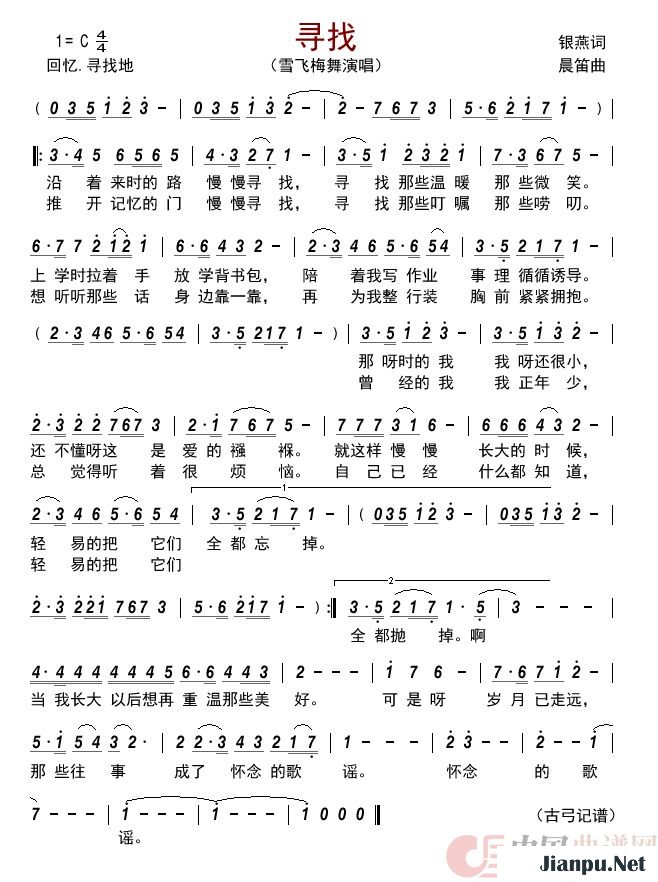 寻找
1= C 4/4
银燕词
回忆.寻找地
（雪飞梅舞演唱）
晨笛曲
( 0 3 5 1 2 3 - | 0 3 5 1 3 2 - | 2 - 7 6 7 3 | 5·6 2 1 7 1 - )|
‖: 3·4 5 6 5 6 5 | 4·3 2 7 1 - | 3·5 1 2 3 2 1 | 7·3 6 7 5 - |
沿 着 来时的 路 慢 慢寻 找， 寻 找 那些温 暖 那 些微 笑。
推 开 记忆的 门 慢 慢寻 找， 寻 找 那些叮 嘱 那 些唠 叨。
6·7 7 2 1 2 1 | 6·7 6 4 3 2 - | 2·3 4 6 5·6 5 4 | 3·5 2 1 7 1 - |
上 学时拉着 手 放 学背书包， 陪 着我写 作业 事 理 循循诱导。
想 听听那些 话 身 边靠一靠， 再 为我整 行装 胸 前 紧紧拥抱。
( 2·3 4 6 5·6 5 4 | 3·5 2 1 7 1 - ) | 3·5 1 2 3 - | 3·5 1 3 2 - |
那 呀时的 我 我 呀还很小，
曾 经的 我 我 正年 少，
2·3 2 2 7 6 7 3 | 2·1 7 6 7 5 - | 7 7 7 3 1 6 - | 6 6 6 4 3 2 - |
还 不懂呀这 是 爱 的 襁 褓。 就这样 慢 慢 长大的 时 候，
总 觉得听 着 着 很 烦 恼。 自 己已 经 什么都 知 道，
1
2·3 4 6 5·6 5 4 | 3·5 2 1 7 1 - | ( 0 3 5 1 2 3 - | 0 3 5 1 3 2 - |
轻 易的把 它们 全 都 忘 掉。
轻 易的把 它们
2
2·3 2 2 1 7 6 7 3 | 5·6 2 1 7 1 - ):‖ 3·5 2 1 7 1· 5 | 3 - - - |
全 都 抛 掉。啊
4·4 4 4 4 4 4 5 | 6·6 4 4 4 3 | 2 - - - | 1 7 6 - | 7·6 7 1 2 - |
当 我长大 以后想再 重 温那些美 好。 可 是 呀 岁 月 已走远，
5·1 5 4 3 2· | 2 5 4 4 3 2 1 7 | 1 - - - | 3 - 2 - | 1 - 5 - |
那 些往 事 成了 怀念 的歌 谣。 怀念 的 歌
7 - - - | 1 - - - | 1 - - - | 1 0 0 0 ‖
（古弓记谱）
谣。
中国曲谱网
Jianpu.Net